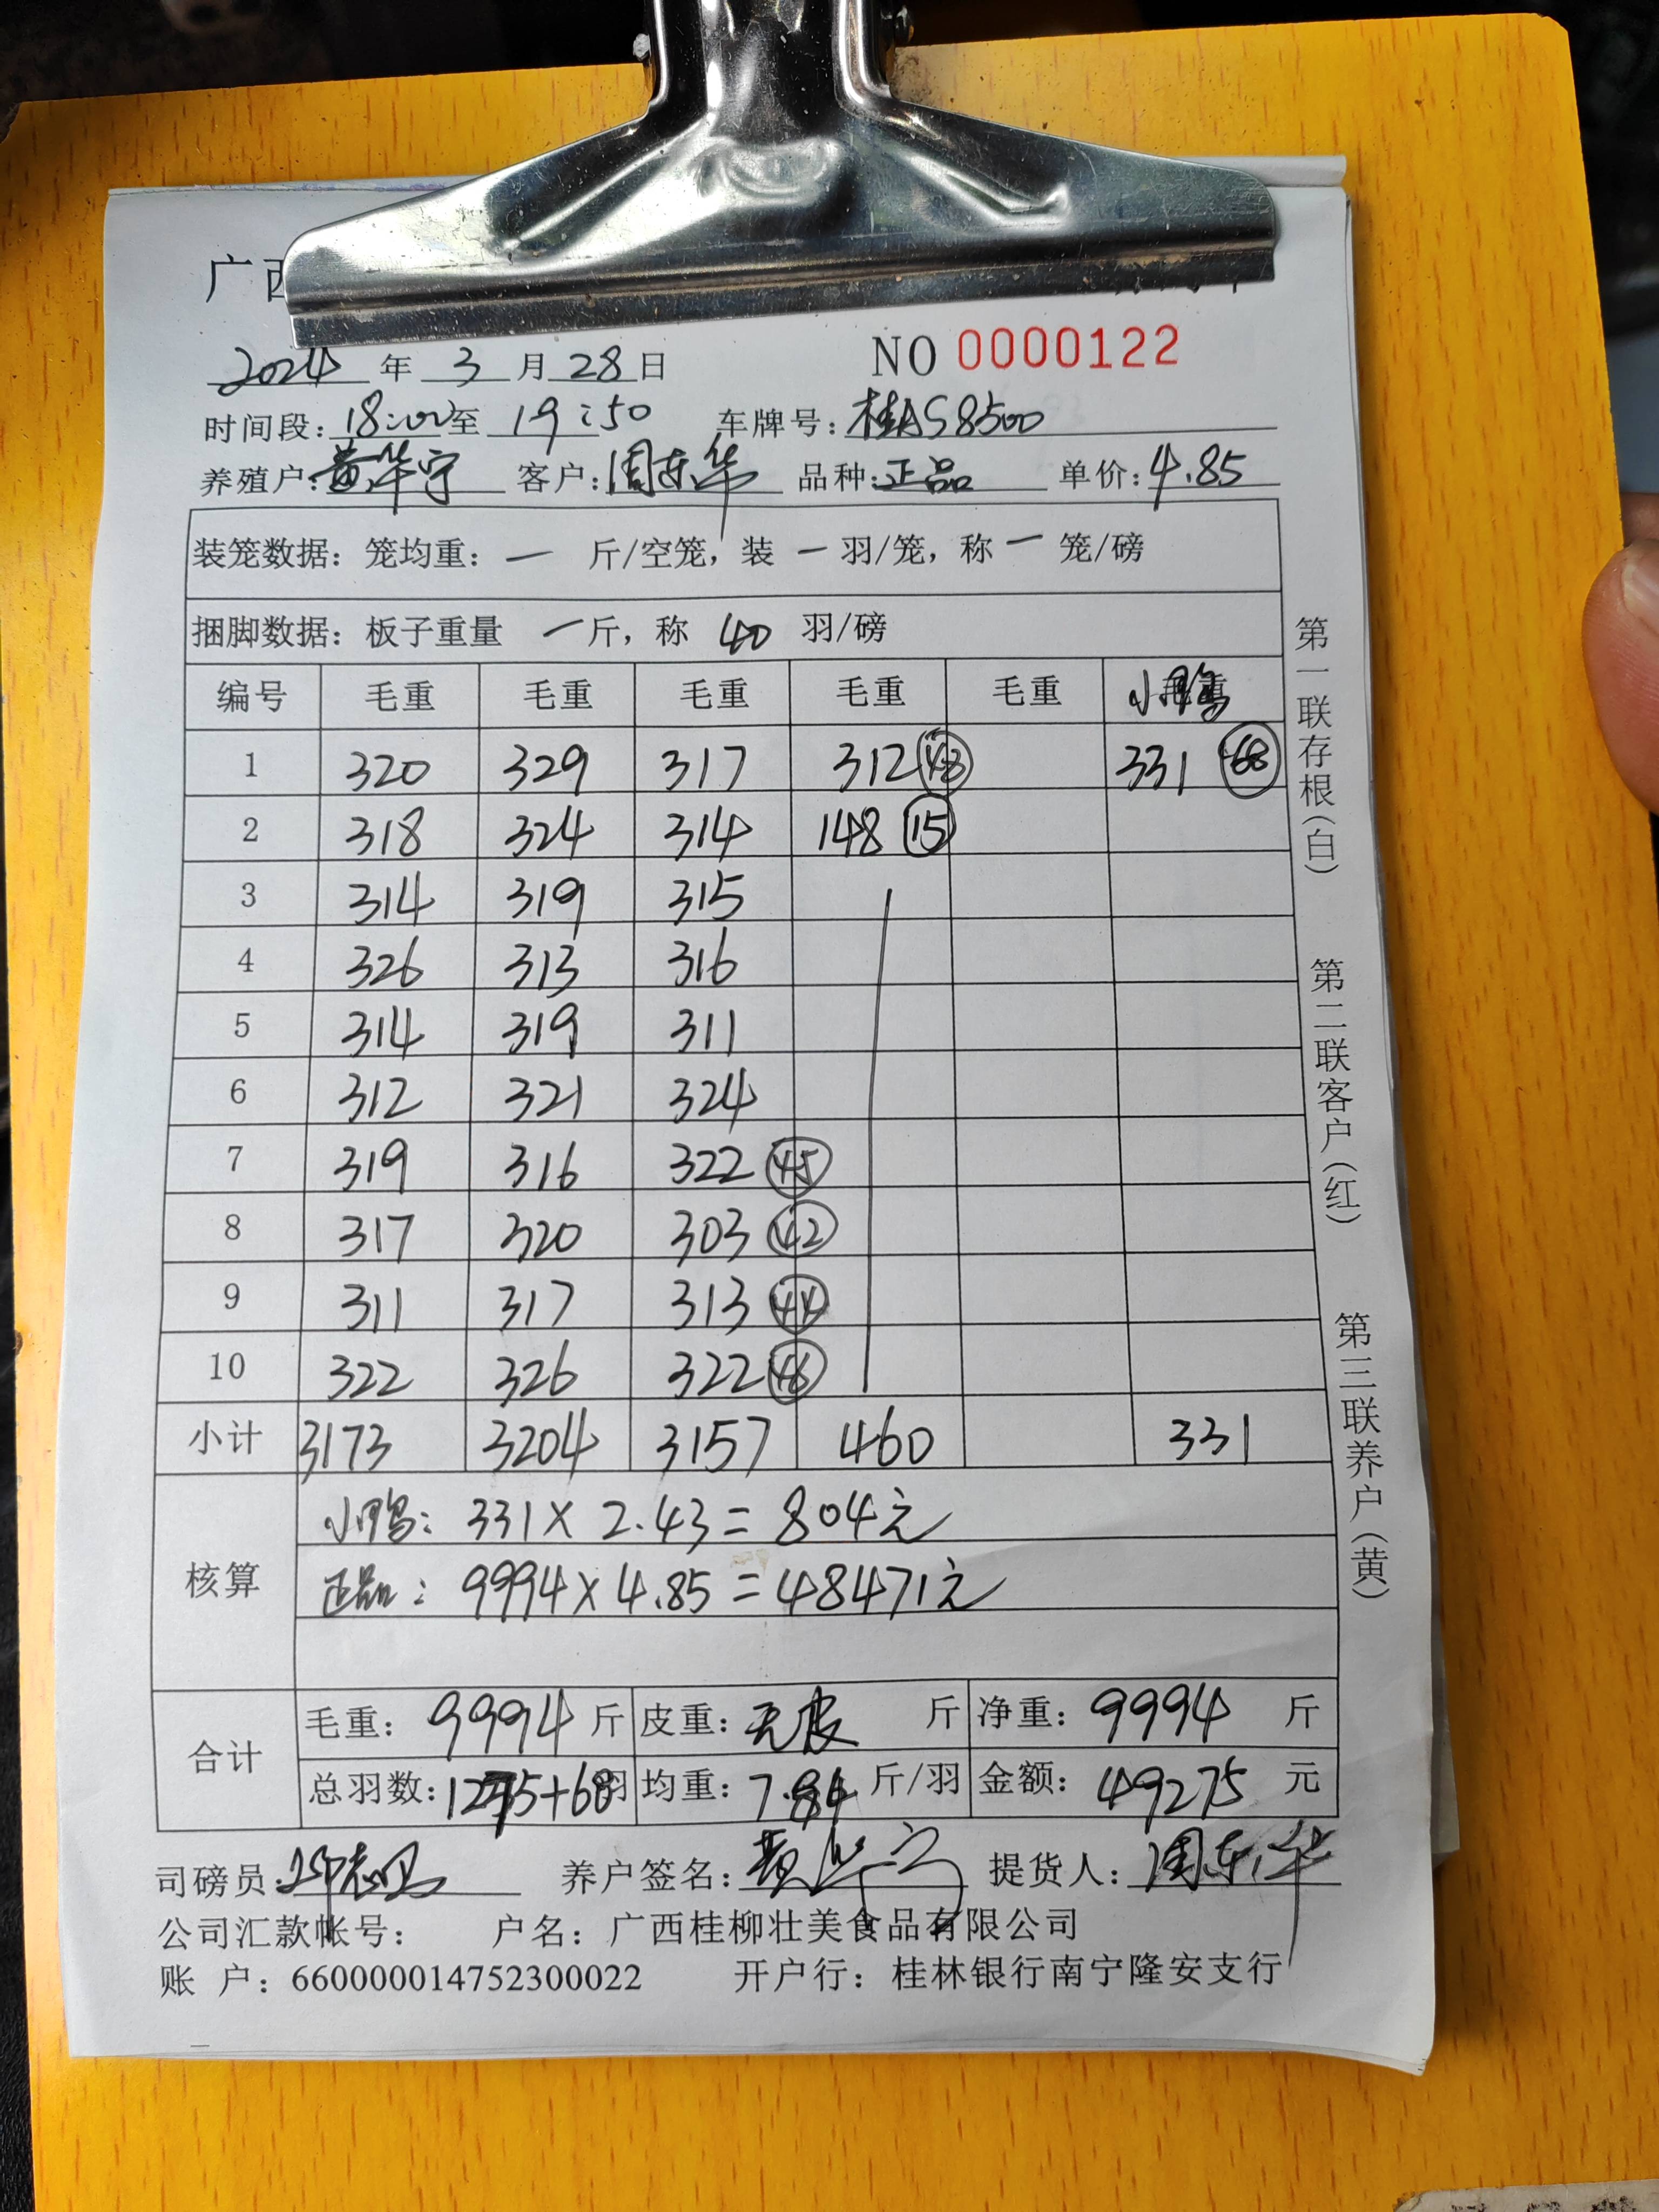 广西
2024 年 3 月 28 日 NO 0000122
时间段: 18:00 至 19:50 车牌号: 桂AS8500
养殖户: 黄华宁 客户: 周东华 品种: 正品 单价: 4.85
装笼数据: 笼均重: — 斤/空笼, 装 — 羽/笼, 称 — 笼/磅
捆脚数据: 板子重量 — 斤, 称 40 羽/磅
编号 毛重 毛重 毛重 毛重 毛重 小鸭
1 320 329 317 312 43 331 68
2 318 324 314 148 15
3 314 319 315
4 326 313 316
5 314 319 311
6 312 321 324
7 319 316 322 45
8 317 320 303 42
9 311 317 313 44
10 322 326 322 46
小计 3173 3204 3157 460 331
核算
小鸭: 331×2.43=804元
正品: 9994×4.85=48471元
合计
毛重: 9994 斤 皮重: 无皮 斤 净重: 9994 斤
总羽数: 1275+68 羽 均重: 7.84 斤/羽 金额: 49275 元
司磅员: 养户签名: 黄华宁 提货人: 周东华
公司汇款帐号: 户名: 广西桂柳壮美食品有限公司
账 户: 660000014752300022 开户行: 桂林银行南宁隆安支行
第一联存根(白)
第二联客户(红)
第三联养户(黄)